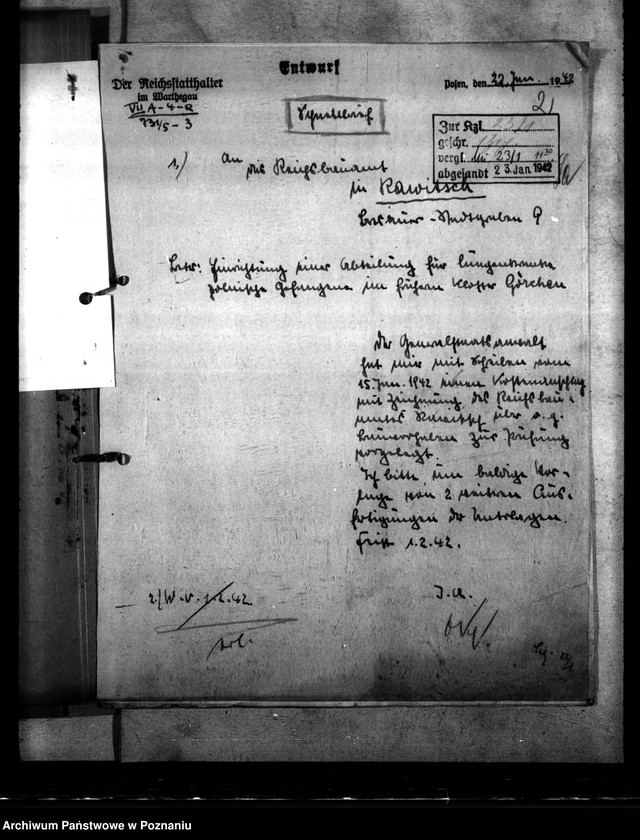 Entwurf
Der Reichsstatthalter
im Warthegau
VII A-4-Q
731/5-3
Posen, den 22. Jan. 1942
2)
Schnellbrief
Zur Kzl. 23/1
geschr.
vergl. 23/1 11 30
abgesandt 23. Jan 1942
1.) An
das Reichsbauamt
in Rawitsch
Breslauer-Stadtgraben 9
Betr: Einrichtung einer Abteilung für lungenkranke
polnische Gefangene im frühern Kloster Görchen
Der Generalstaatsanwalt
hat mir mit Schreiben vom
15. Jan. 1942 einen Kostenanschlag
mit Zeichnung des Reichsbau-
amtes Rawitsch über o. g.
Bauvorhaben zur Prüfung
vorgelegt.
Ich bitte um baldige Vor-
lage von 2 weitern Aus-
fertigungen der Unterlagen.
Frist 1.2.42.
2.) W.v. 1.2.42
I.A.
Archiwum Państwowe w Poznaniu